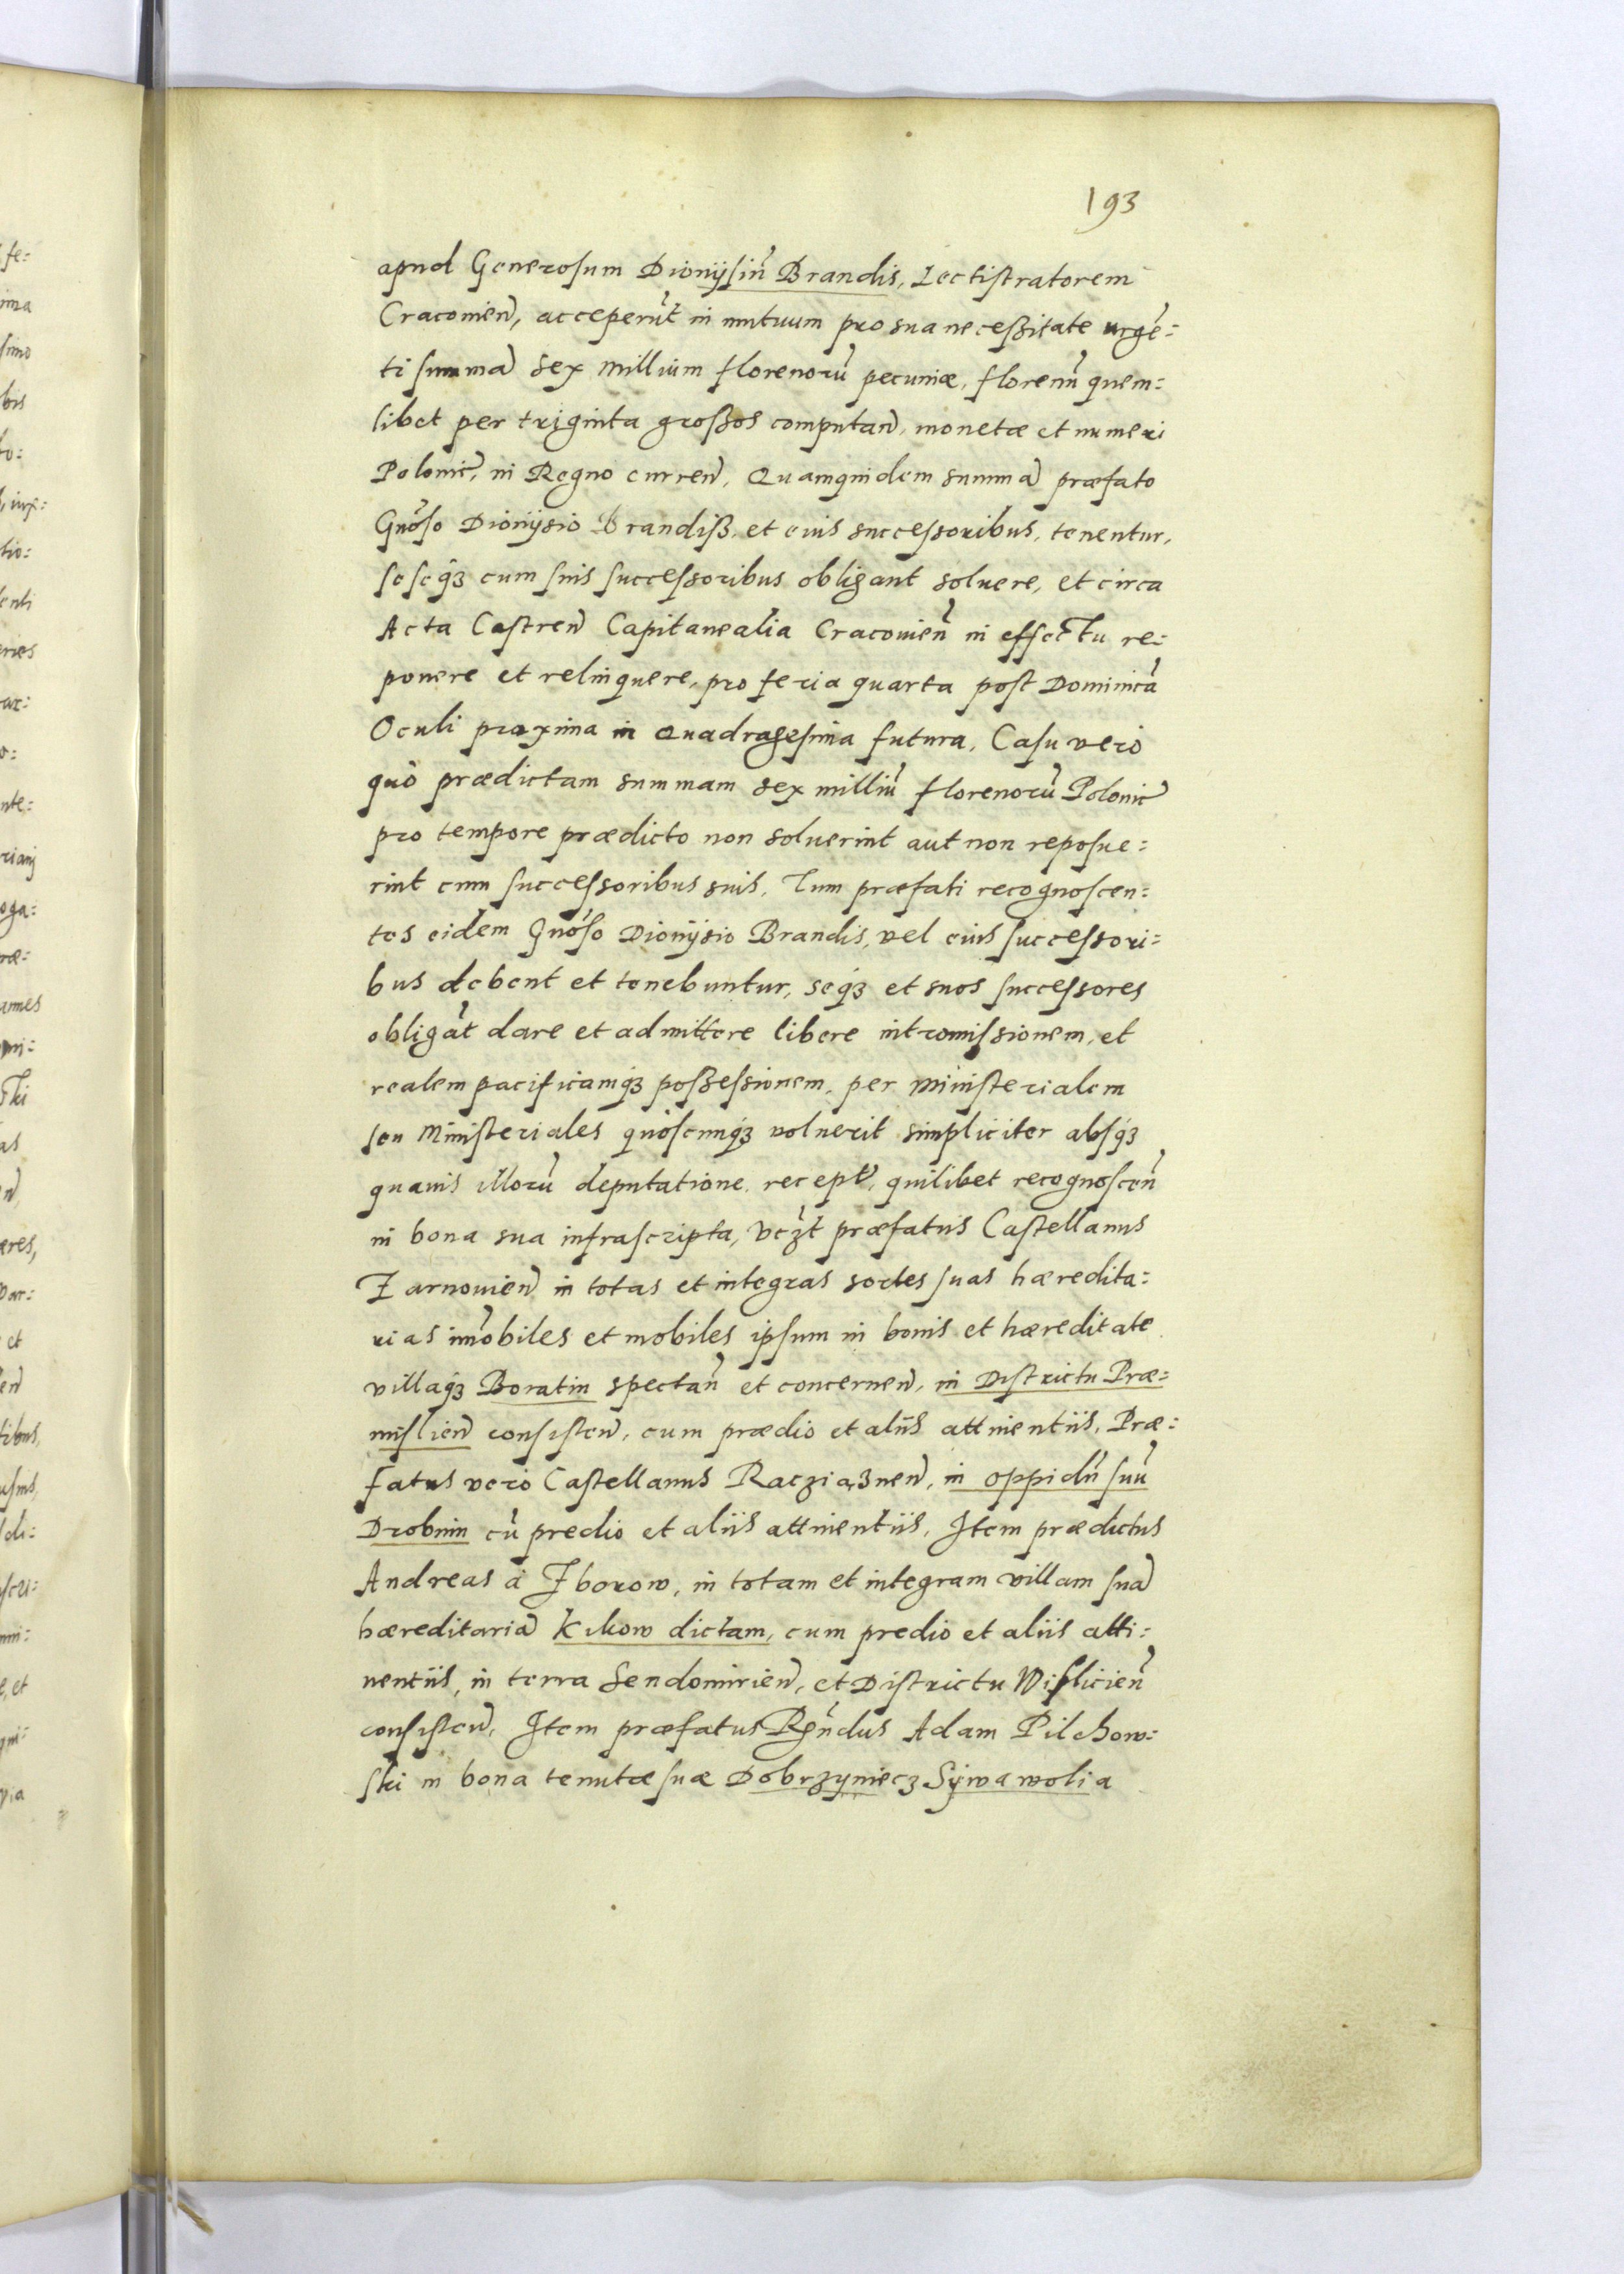 193
apud Generosum Dionÿsiũ Brandis, Lectistratorem
Cracovieñ, acceperũt in mutuum pro sua necessitate urgẽ:
ti summã sex millium florenorũ pecuniæ, florenũ quem:
libet per triginta grossos computañ, monetæ et numeri
Polonic̃, in Regno curreñ, Quamquidem summã præfato
Gnõso Dionÿsio Brandiss, et eius successoribus, tenentur,
seseq̃ȝ cum suis successoribus obligant soluere, et circa
Acta Castreñ Capitanealia Cracovieñ in effectu re:
ponere et relinquere, pro feria quarta post Dominicã
Oculi proxima in Quadragesima futura, Casu vero
quo prædictam summam sex milliũ florenorũ Polonic̃
pro tempore prædicto non soluerint aut non reposue:
rint cum successoribus suis, Tum præfati recognoscen:
tes eidem Gnõso Dionÿsio Brandis, vel eius successori:
bus debent et tenebuntur, seq̃ȝ et suos successores
obligãt dare et admittere libere intromissionem, et
realem pacificamq̃ȝ possessionem, per ministerialem
seu Ministeriales quoscunq̃ȝ voluerit simpliciter absq̃ȝ
quavis illorũ deputatione, recept̃, quilibet recognosceñ
in bona sua infrascripta, Vcz̃t præfatus Castellanus
Zarnovieñ in totas et integras sortes suas hæredita:
rias im̃obiles et mobiles ipsum in bonis et hæreditate
villaq̃ȝ Boratin spectañ et concerneñ, in Districtu Præ:
mislieñ consisteñ, cum prædio et aliis attinentiis, Præ:
fatus vero Castellanus Racziąȝneñ, in oppidũ suũ
Drobnin cũ predio et aliis attinentiis, Item prædictus
Andreas à Zborow, in totam et integram villam suã
hæreditariã Kikow dictam, cum predio et aliis atti:
nentiis, in terra Sendomirieñ, et Districtu Wislicieñ
consisteñ, Item præfatus Rgñdus Adam Pilchow:
ski in bona tenutæ suæ Dobrzÿniecz Sÿwawolia